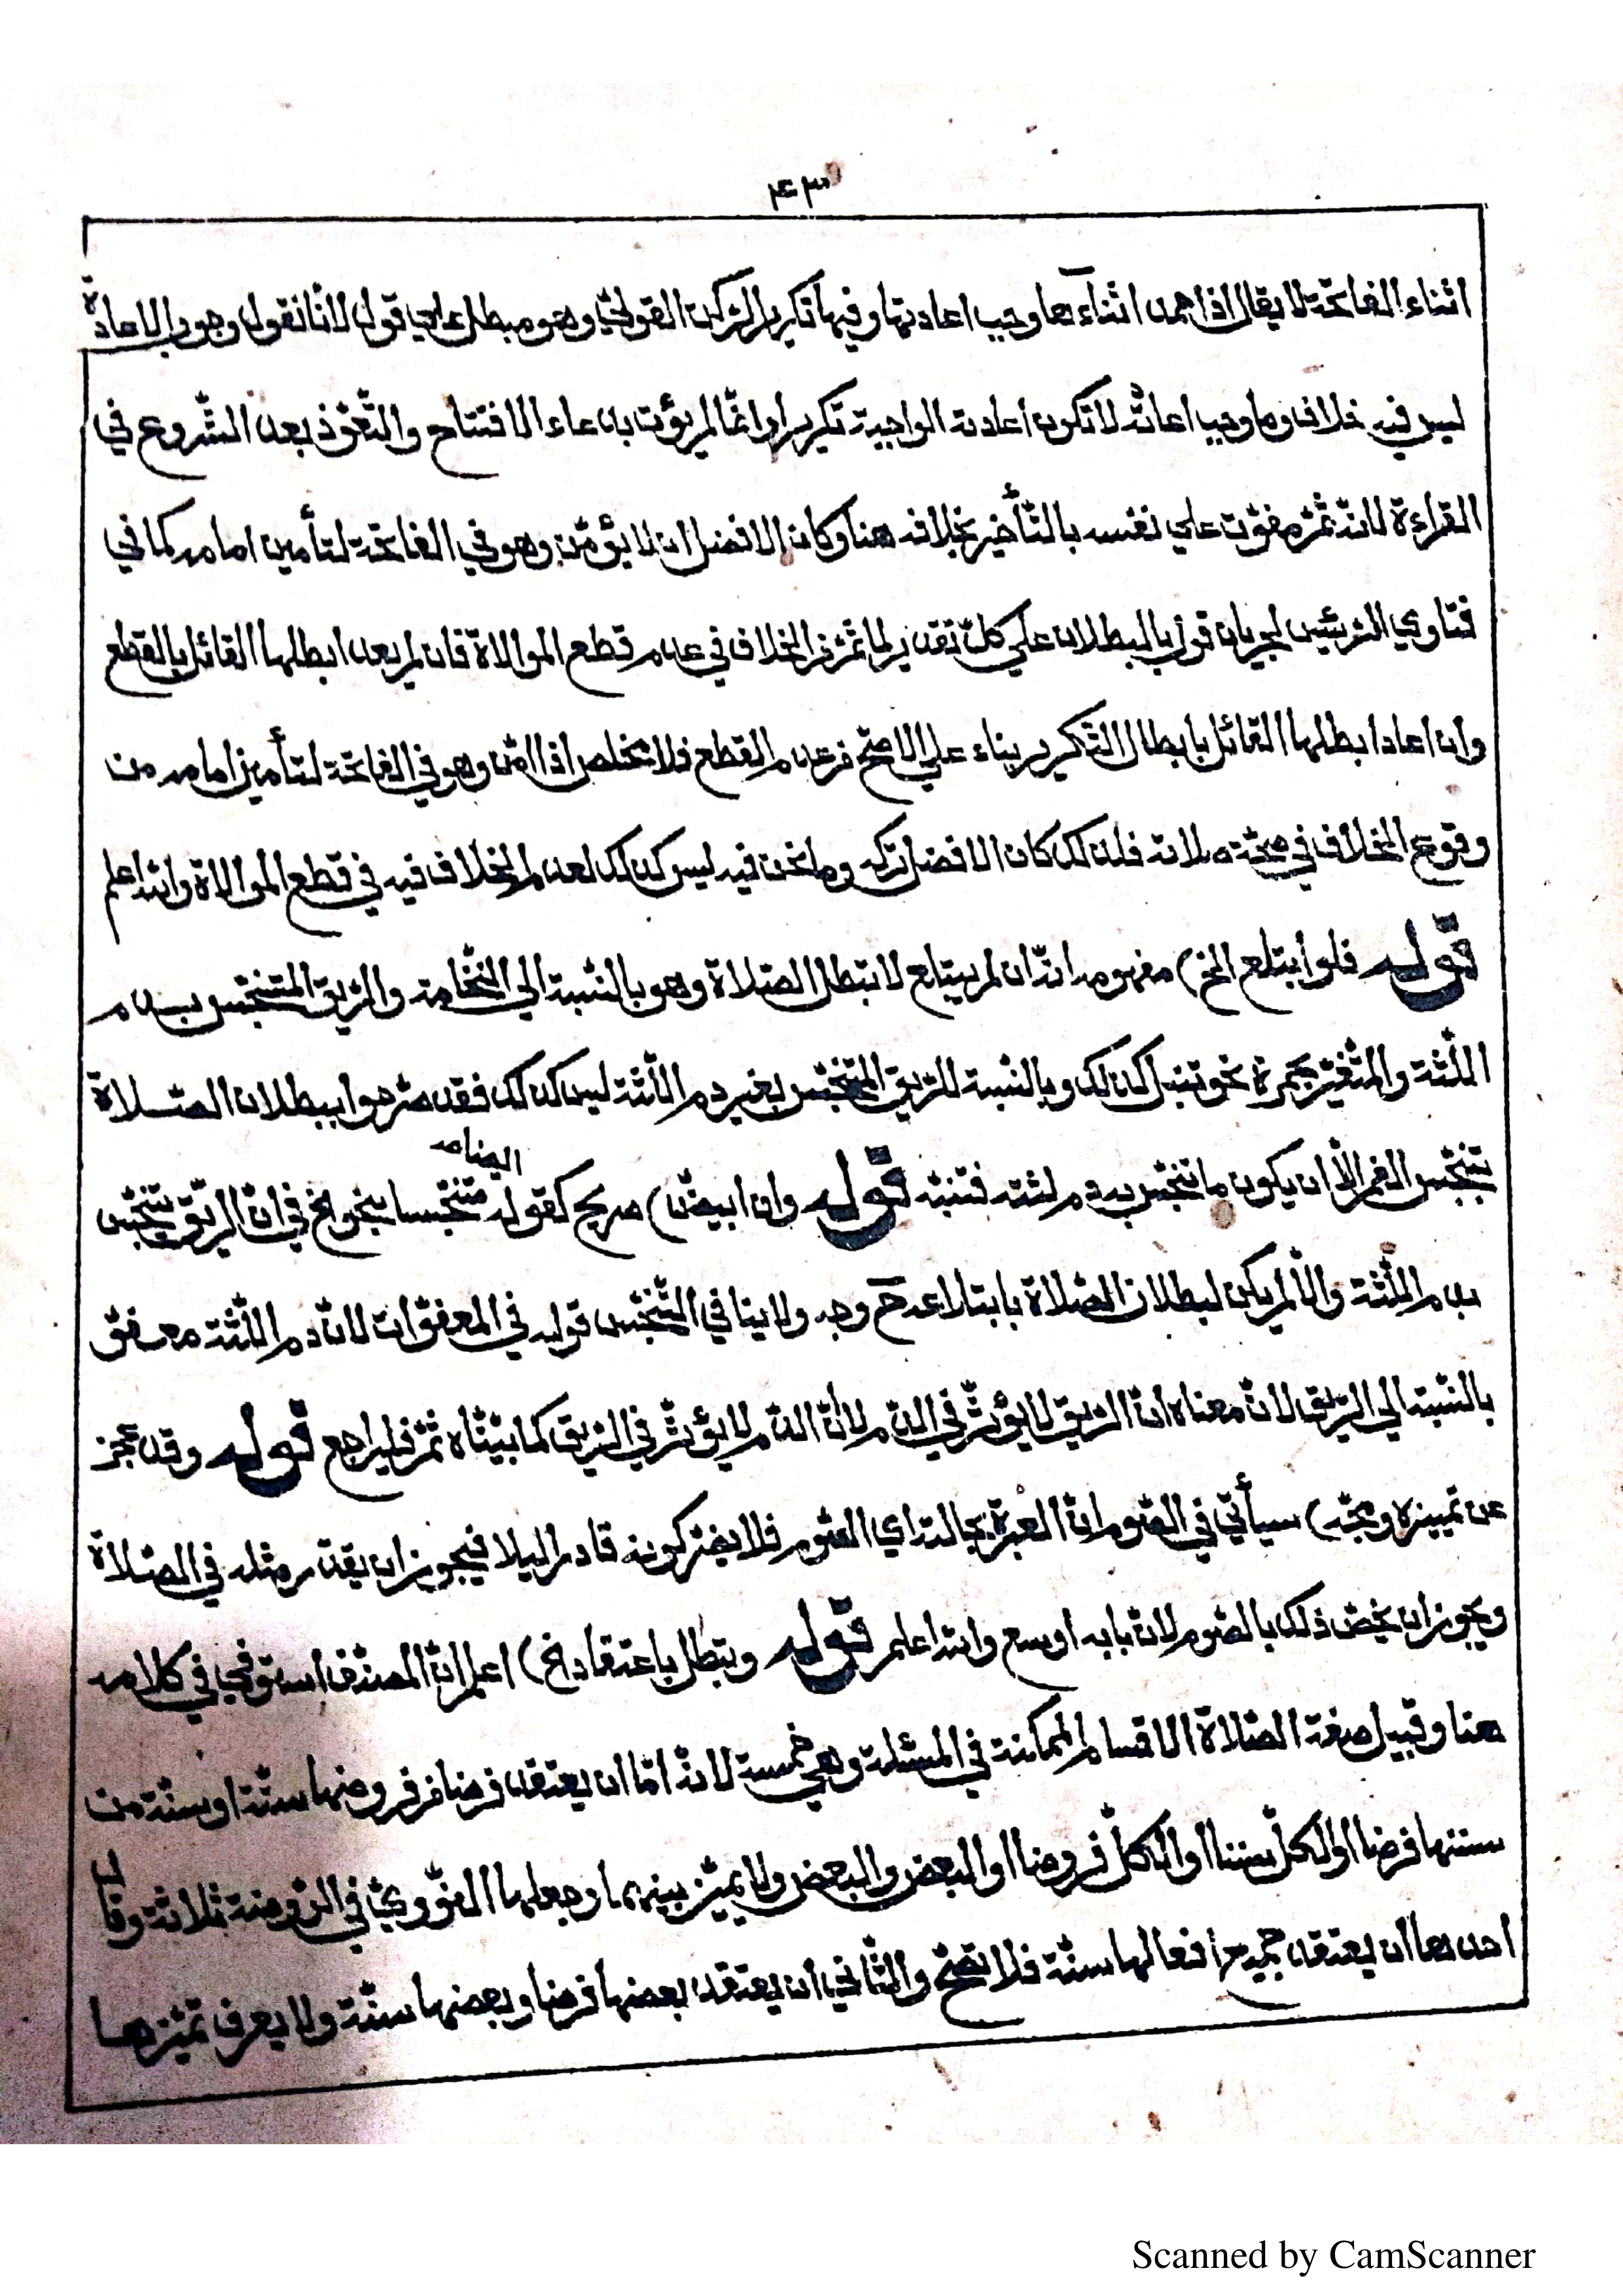 ٤٣
اثناء الفاتحة لا يقال اذا حمد اثناءها وجب اعادتها وفيها تكرير الركن القولي وهو مبطل علي قول لانا نقول وجوب الاعادة
ليس فيه خلاف وما وجب اعادته لا تكون اعادته الواجبة تكريرا وانما لم يؤت بدعاء الافتتاح والتعوذ بعد الشروع في
القراءة لانه ثم مفوت علي نفسه بالتأخير بخلافه هنا وكان الافضل ان لا يؤمن وهو في الفاتحة لتأمين امامه كما في
فتاوي الرئيس لجريان قول بالبطلان علي كل تقدير لما ثم من الخلاف في عدم قطع الموالاة فان لم يعد ابطلها القائل بالقطع
وان اعاد ابطلها القائل بابطال التكرير بناء علي الاصح من عدم القطع فلا يتخلص اذا امن وهو في الفاتحة لتأمين امامه من
وقوع الخلاف في صحة صلاته فلذلك كان الافضل تركه وما نحن فيه ليس كذلك لعدم الخلاف فيه في قطع الموالاة والله اعلم
قوله فلو ابتلع الخ) مفهومه انه ان لم يبتلع لا تبطل الصلاة وهو بالنسبة الي النخامة والريق المتنجس بدم
اللثة والمتغير بحمرة نحو تنبل كذلك وبالنسبة للريق المتنجس بغير دم اللثة ليس كذلك فقد صرحوا ببطلان الصلاة
بتنجس الفم الا ان يكون ما تنجس به دم لثته فتنبه قوله وان ابيض) صريح كقوله متنجسا بنحو الخ في ان الريق يتنجس
ايضا منه
بدم اللثة والا لم يكن لبطلان الصلاة بابتلاعه ح وجه ولا ينافي التنجس قوله في المعفوات لان دم اللثة معفو
بالنسبة الي الريق لان معناه ان الريق لا يؤثر في الدم لا ان الدم لا يؤثر في الريق كما بيناه ثم فليراجع قوله وقد عجز
عن تمييزه ومجه) سيأتي في الصوم ان العبرة بحالته اي الصوم فلا يضر كونه قادرا ليلا فيجوز ان يقدر مثله في الصلاة
ويجوز ان يخص ذلك بالصوم لان بابه اوسع والله اعلم قوله وتبطل باعتقاد الخ) اعلم ان المصنف استوفي في كلامه
هنا وقبيل صفة الصلاة الاقسام الممكنة في المسئلة وهي خمسة لانه اما ان يعتقد فرضا من فروضها سنة او سنة من
سننها فرضا او الكل سننا او الكل فروضا او البعض والبعض ولا يميز بينهما وجعلها النووي في الروضة ثلاثة وقال
احدها ان يعتقد جميع افعالها سنة فلا تصح والثاني ان يعتقد بعضها فرضا وبعضها سنة ولا يعرف تميزها
Scanned by CamScanner